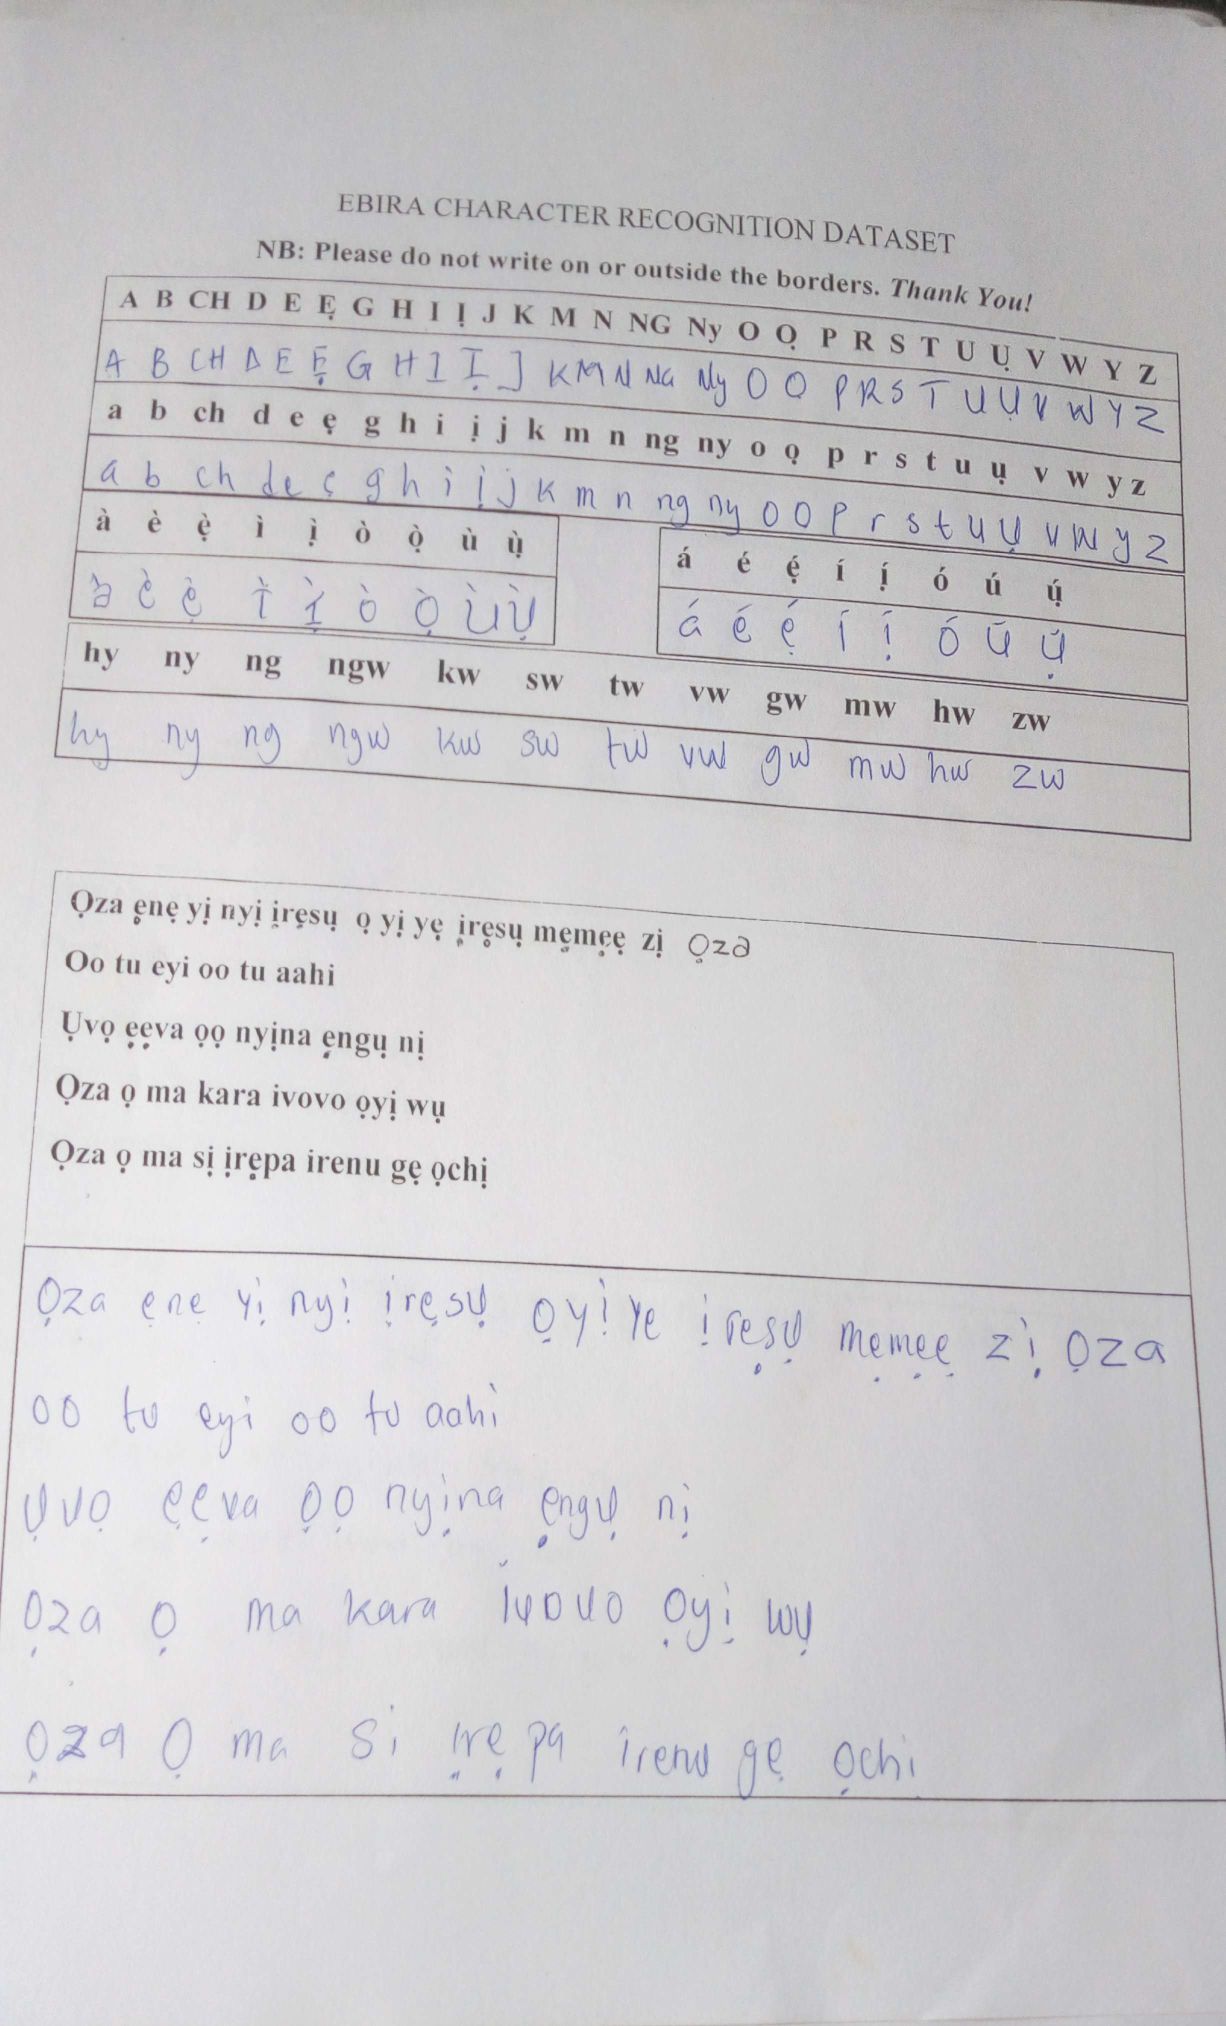 EBIRA CHARACTER RECOGNITION DATASET
NB: Please do not write on or outside the borders. Thank You!
A B CH D E Ẹ G H I Ị J K M N NG Ny O Ọ P R S T U Ụ V W Y Z
A B CH D E Ẹ G H I Ị J K M N NG Ny O O P R S T U Ụ V W Y Z
a b ch d e ẹ g h i ị j k m n ng ny o ọ p r s t u ụ v w y z
a b ch d e ẹ g h i ị j k m n ng ny o o p r s t u ụ v w y z
à è ẹ̀ ì ị̀ ò ọ̀ ù ụ̀
à è ẹ̀ ì ị̀ ò ọ̀ ù ụ̀
á é ẹ́ í ị́ ó ú ụ́
á é ẹ́ í ị́ ó ú ụ́
hy ny ng ngw kw sw tw vw gw mw hw zw
hy ny ng ngw kw sw tw vw gw mw hw zw
Ọza ẹnẹ yị nyị ịrẹsụ ọ yị yẹ ịrẹsụ mẹmẹẹ zị ọza
Oo tu eyi oo tu aahi
Ụvọ ẹẹva ọọ nyịna ẹngụ nị
Ọza ọ ma kara ivovo ọyị wụ
Ọza ọ ma sị ịrẹpa irenu gẹ ọchị
Ọza ẹnẹ yị nyị ịrẹsụ ọyị ye ịreṣụ mẹmẹẹ zị ọza
oo tu eyi oo tu aahi
ụvọ ẹẹva ọọ nyịna ẹngụ nị
ọza ọ ma kara ivovo ọyị wụ
ọza ọ ma si ịrẹpa irenu gẹ ọchi